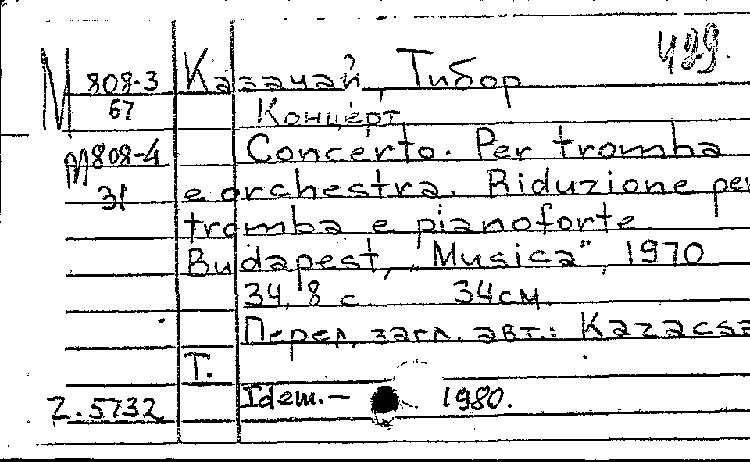 489.
М 808-3 Казачай, Тибор
67 Концерт
М 808-4 Concerto. Per tromba
31 e orchestra. Riduzione per
tromba e pianoforte.
Budapest, "Musica", 1970
34, 8 с. 34см.
Перед. загл. авт.: Kazacsa
Т.
Z.5732 Idem.- 1980.